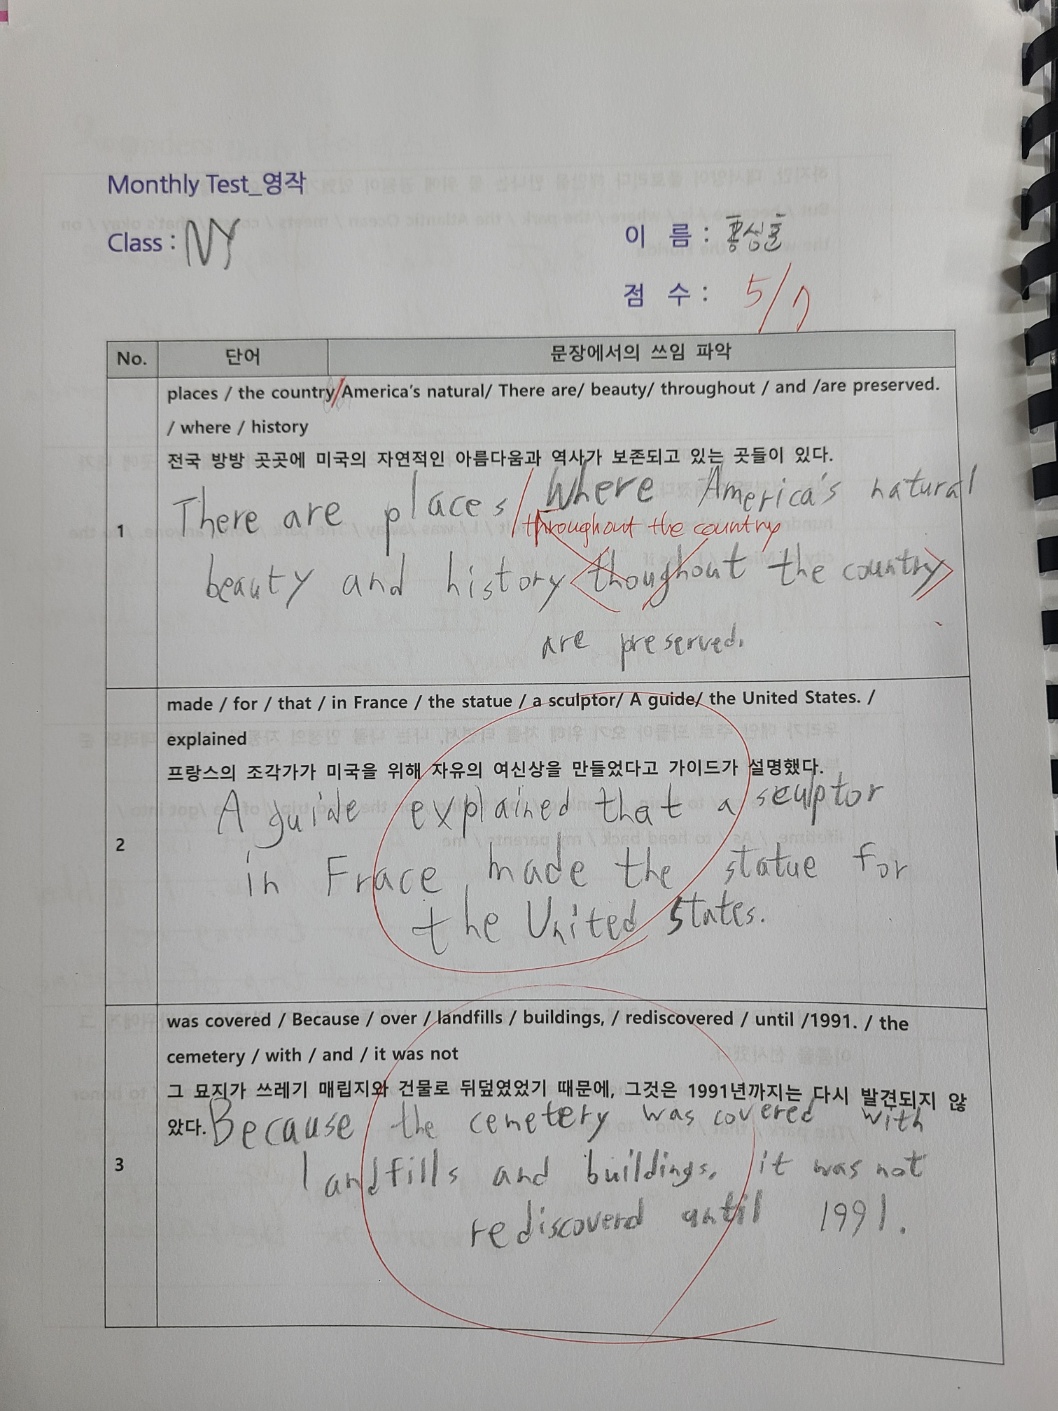 Monthly Test_영작
Class : NY
이 름 : 홍성훈
점 수 : 5/7
No. 단어 문장에서의 쓰임 파악
1
places / the country/America's natural/ There are/ beauty/ throughout / and /are preserved.
/ where / history
전국 방방 곳곳에 미국의 자연적인 아름다움과 역사가 보존되고 있는 곳들이 있다.
There are places / Where America's natural
throughout the country
beauty and history <thoughout the country>
are preserved.
2
made / for / that / in France / the statue / a sculptor/ A guide/ the United States. /
explained
프랑스의 조각가가 미국을 위해 자유의 여신상을 만들었다고 가이드가 설명했다.
A guide explained that a sculptor
in Frace made the statue for
the United States.
3
was covered / Because / over / landfills / buildings, / rediscovered / until /1991. / the
cemetery / with / and / it was not
그 묘지가 쓰레기 매립지와 건물로 뒤덮였었기 때문에, 그것은 1991년까지는 다시 발견되지 않
았다. Because the cemetery was covered with
landfills and buildings, it was not
rediscoverd until 1991.